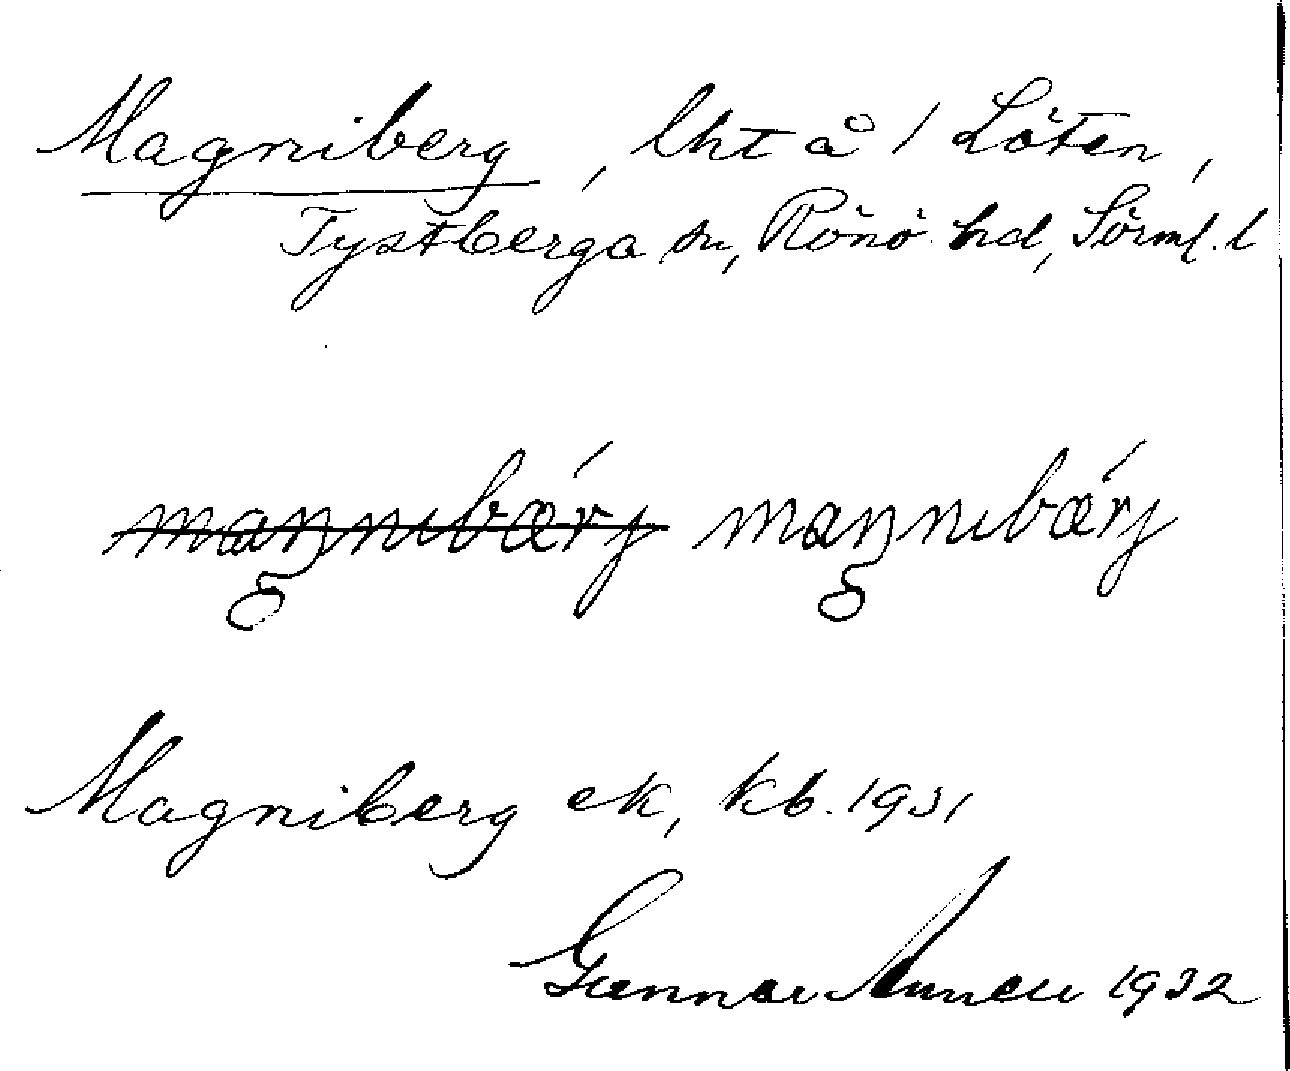 Magniberg, lht å / Löten,
Tystberga sn, Rönö hd, Sörml. l
maŋnıbǽrj maŋnıbǽrj
Magniberg ek, kb. 1931
Gunnar 1932